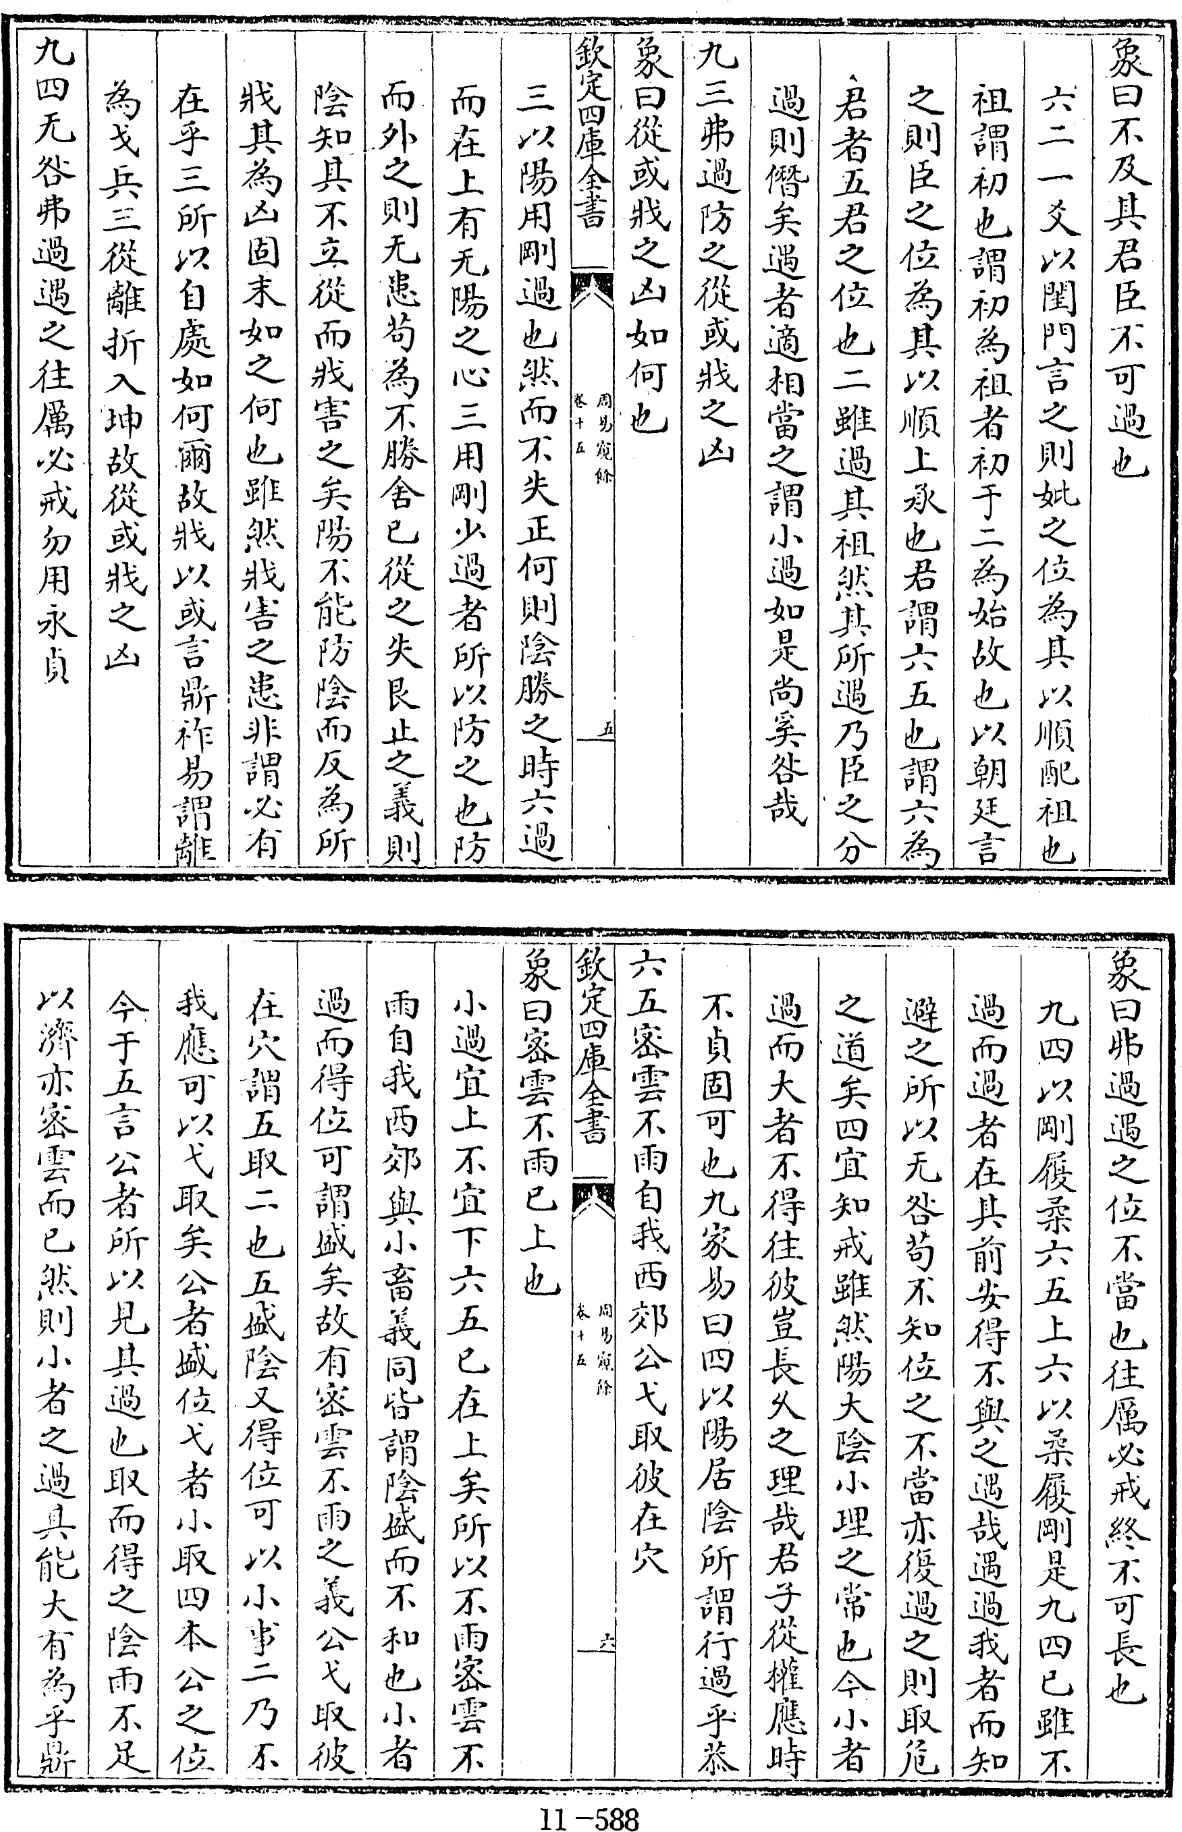 象曰不及其君臣不可過也
六二一爻以閨門言之則妣之位為其以順配祖也
祖謂初也謂初為祖者初于二為始故也以朝廷言
之則臣之位為其以順上承也君謂六五也謂六為
君者五君之位也二雖過其祖然其所遇乃臣之分
過則僭矣遇者適相當之謂小過如是尚奚咎哉
九三弗過防之從或戕之凶
象曰從或戕之凶如何也
欽定四庫全書
周易窺餘
卷十五
五
三以陽用剛過也然而不失正何則陰勝之時六過
而在上有无陽之心三用剛少過者所以防之也防
而外之則无患苟為不勝舍已從之失艮止之義則
陰知其不立從而戕害之矣陽不能防陰而反為所
戕其為凶固末如之何也雖然戕害之患非謂必有
在乎三所以自處如何爾故戕以或言鼎祚易謂離
為戈兵三從離折入坤故從或戕之凶
九四无咎弗過遇之往厲必戒勿用永貞
象曰弗過遇之位不當也往厲必戒終不可長也
九四以剛履柔六五上六以柔履剛是九四已雖不
過而過者在其前安得不與之遇哉遇過我者而知
避之所以无咎苟不知位之不當亦復過之則取危
之道矣四宜知戒雖然陽大陰小理之常也今小者
過而大者不得往彼豈長久之理哉君子從權應時
不貞固可也九家易曰四以陽居陰所謂行過乎恭
六五密雲不雨自我西郊公弋取彼在穴
象曰密雲不雨已上也
欽定四庫全書
周易窺餘
卷十五
六
小過宜上不宜下六五已在上矣所以不雨密雲不
雨自我西郊與小畜義同皆謂陰盛而不和也小者
過而得位可謂盛矣故有密雲不雨之義公弋取彼
在穴謂五取二也五盛陰又得位可以小事二乃不
我應可以弋取矣公者盛位弋者小取四本公之位
今于五言公者所以見其過也取而得之陰雨不足
以濟亦密雲而已然則小者之過具能大有為乎鼎
11-588